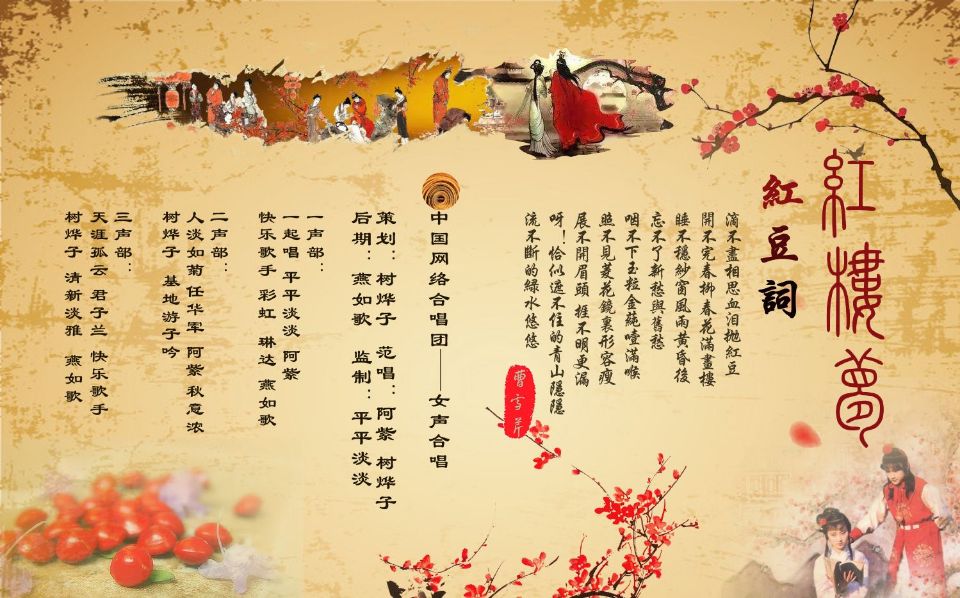 紅樓夢
紅豆詞
滴不盡相思血泪拋紅豆
開不完春柳春花滿畫樓
睡不穩紗窗風雨黃昏後
忘不了新愁與舊愁
咽不下玉粒金蒓噎滿喉
照不見菱花鏡裏形容瘦
展不開眉頭 捱不明更漏
呀！恰似遮不住的青山隱隱
流不斷的綠水悠悠
曹雪芹
中国网络合唱团——女声合唱
策划：树烨子 范唱：阿紫 树烨子
后期：燕如歌 监制：平平淡淡
一声部：
一起唱 平平淡淡 阿紫
快乐歌手 彩虹 琳达 燕如歌
二声部：
人淡如菊 任华军 阿紫 秋意浓
树烨子 基地游子吟
三声部：
天涯孤云 君子兰 快乐歌手
树烨子 清新淡雅 燕如歌